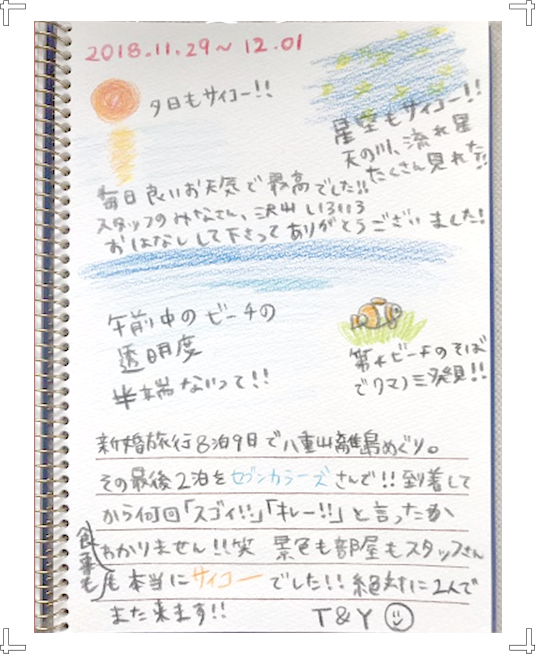 2018.11.29〜12.01
夕日もサイコー!!
星空もサイコー!!
天の川、流れ星
たくさん見れた!!
毎日良いお天気で最高でした!!
スタッフのみなさん、沢山いろいろ
おはなしして下さってありがとうございました!
午前中のビーチの
透明度
半端ないって!!
ビーチのそば
でクマノミ発見!!
新婚旅行8泊9日で八重山離島めぐり。
その最後2泊をセブンカラーズさんで!!到着して
から何回「スゴイ!!」「キレー!!」と言ったか
わかりません!!笑 景色も部屋もスタッフさん
食事も
も本当にサイコーでした!!絶対に2人で
また来ます!!
T&Y